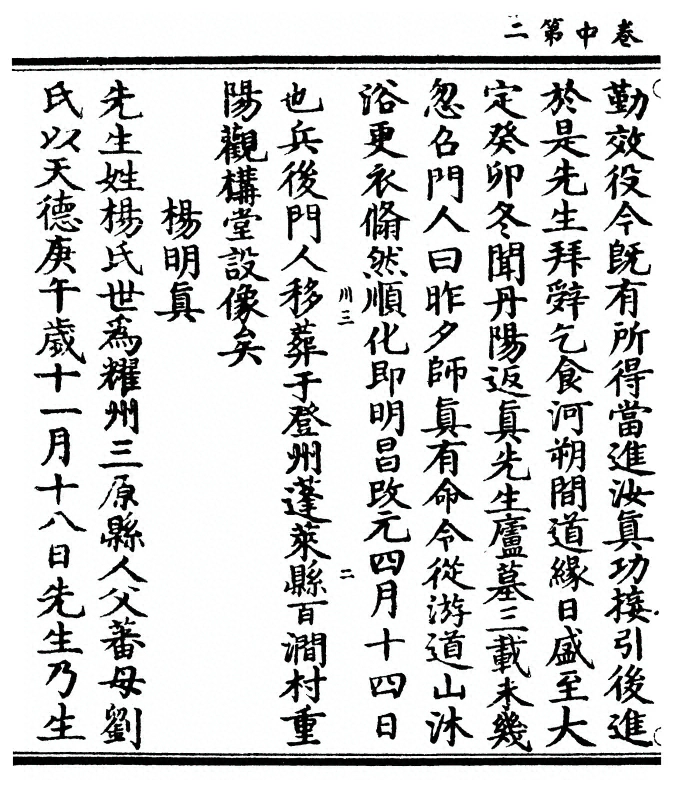 卷中第二
勤效役今既有所得當進汝真功接引後進
於是先生拜辭乞食河朔間道緣日盛至大
定癸卯冬聞丹陽返真先生廬墓三載未幾
忽召門人曰昨夕師真有命令從游道山沐
浴更衣翛然順化即明昌改元四月十四日
川三
二
也兵後門人移葬于登州蓬萊縣百澗村重
陽觀構堂設像矣
楊明真
先生姓楊氏世爲耀州三原縣人父蕃母劉
氏以天德庚午歲十一月十八日先生乃生